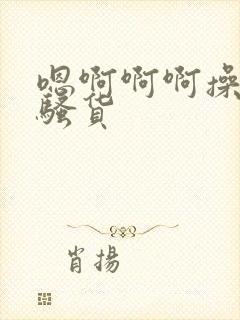 嗯啊啊啊操
骚货
肖揚